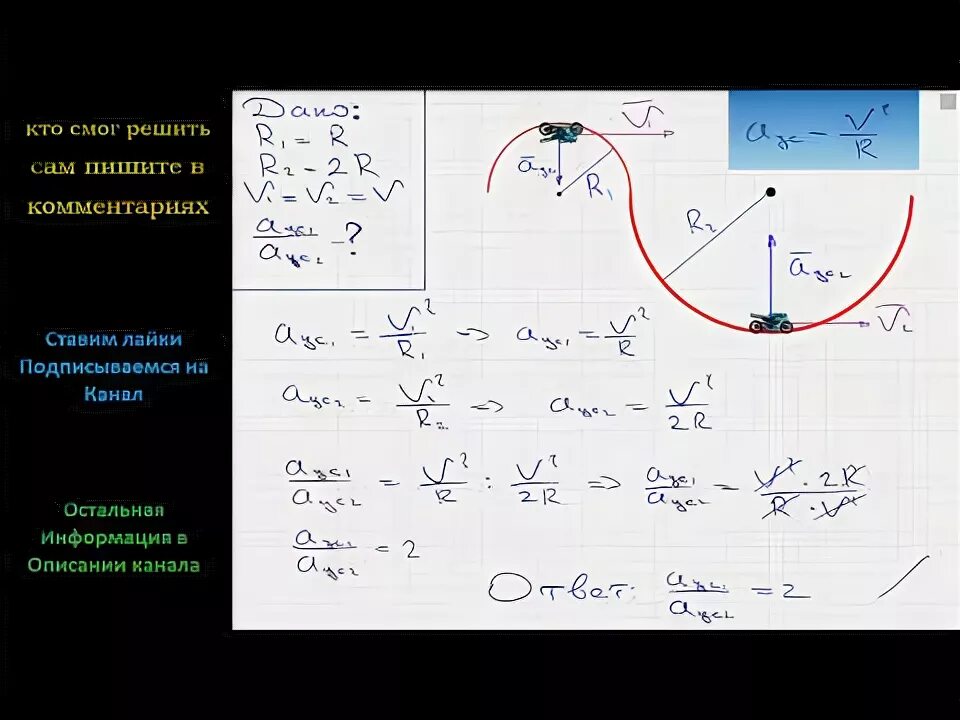 кто смог решить
сам пишите в
комментариях
Ставим лайки
Подписываемся на
Канал
Остальная
Информация в
Описании канала
Дано:
R₁ = R
R₂ - 2R
V₁ = V₂ = V
aцс₁/aцс₂ - ?
V̅₁
a̅цс₁
R₁
aцс = V²/R
R₂
a̅цс₂
V̅₂
aцс₁ = V₁²/R₁ => aцс₁ = V²/R
aцс₂ = V₁²/R₂ => aцс₂ = V²/2R
aцс₁/aцс₂ = V²/R : V²/2R => aцс₁/aцс₂ = V² · 2R/R · V²
aцс₁/aцс₂ = 2
Ответ: aцс₁/aцс₂ = 2